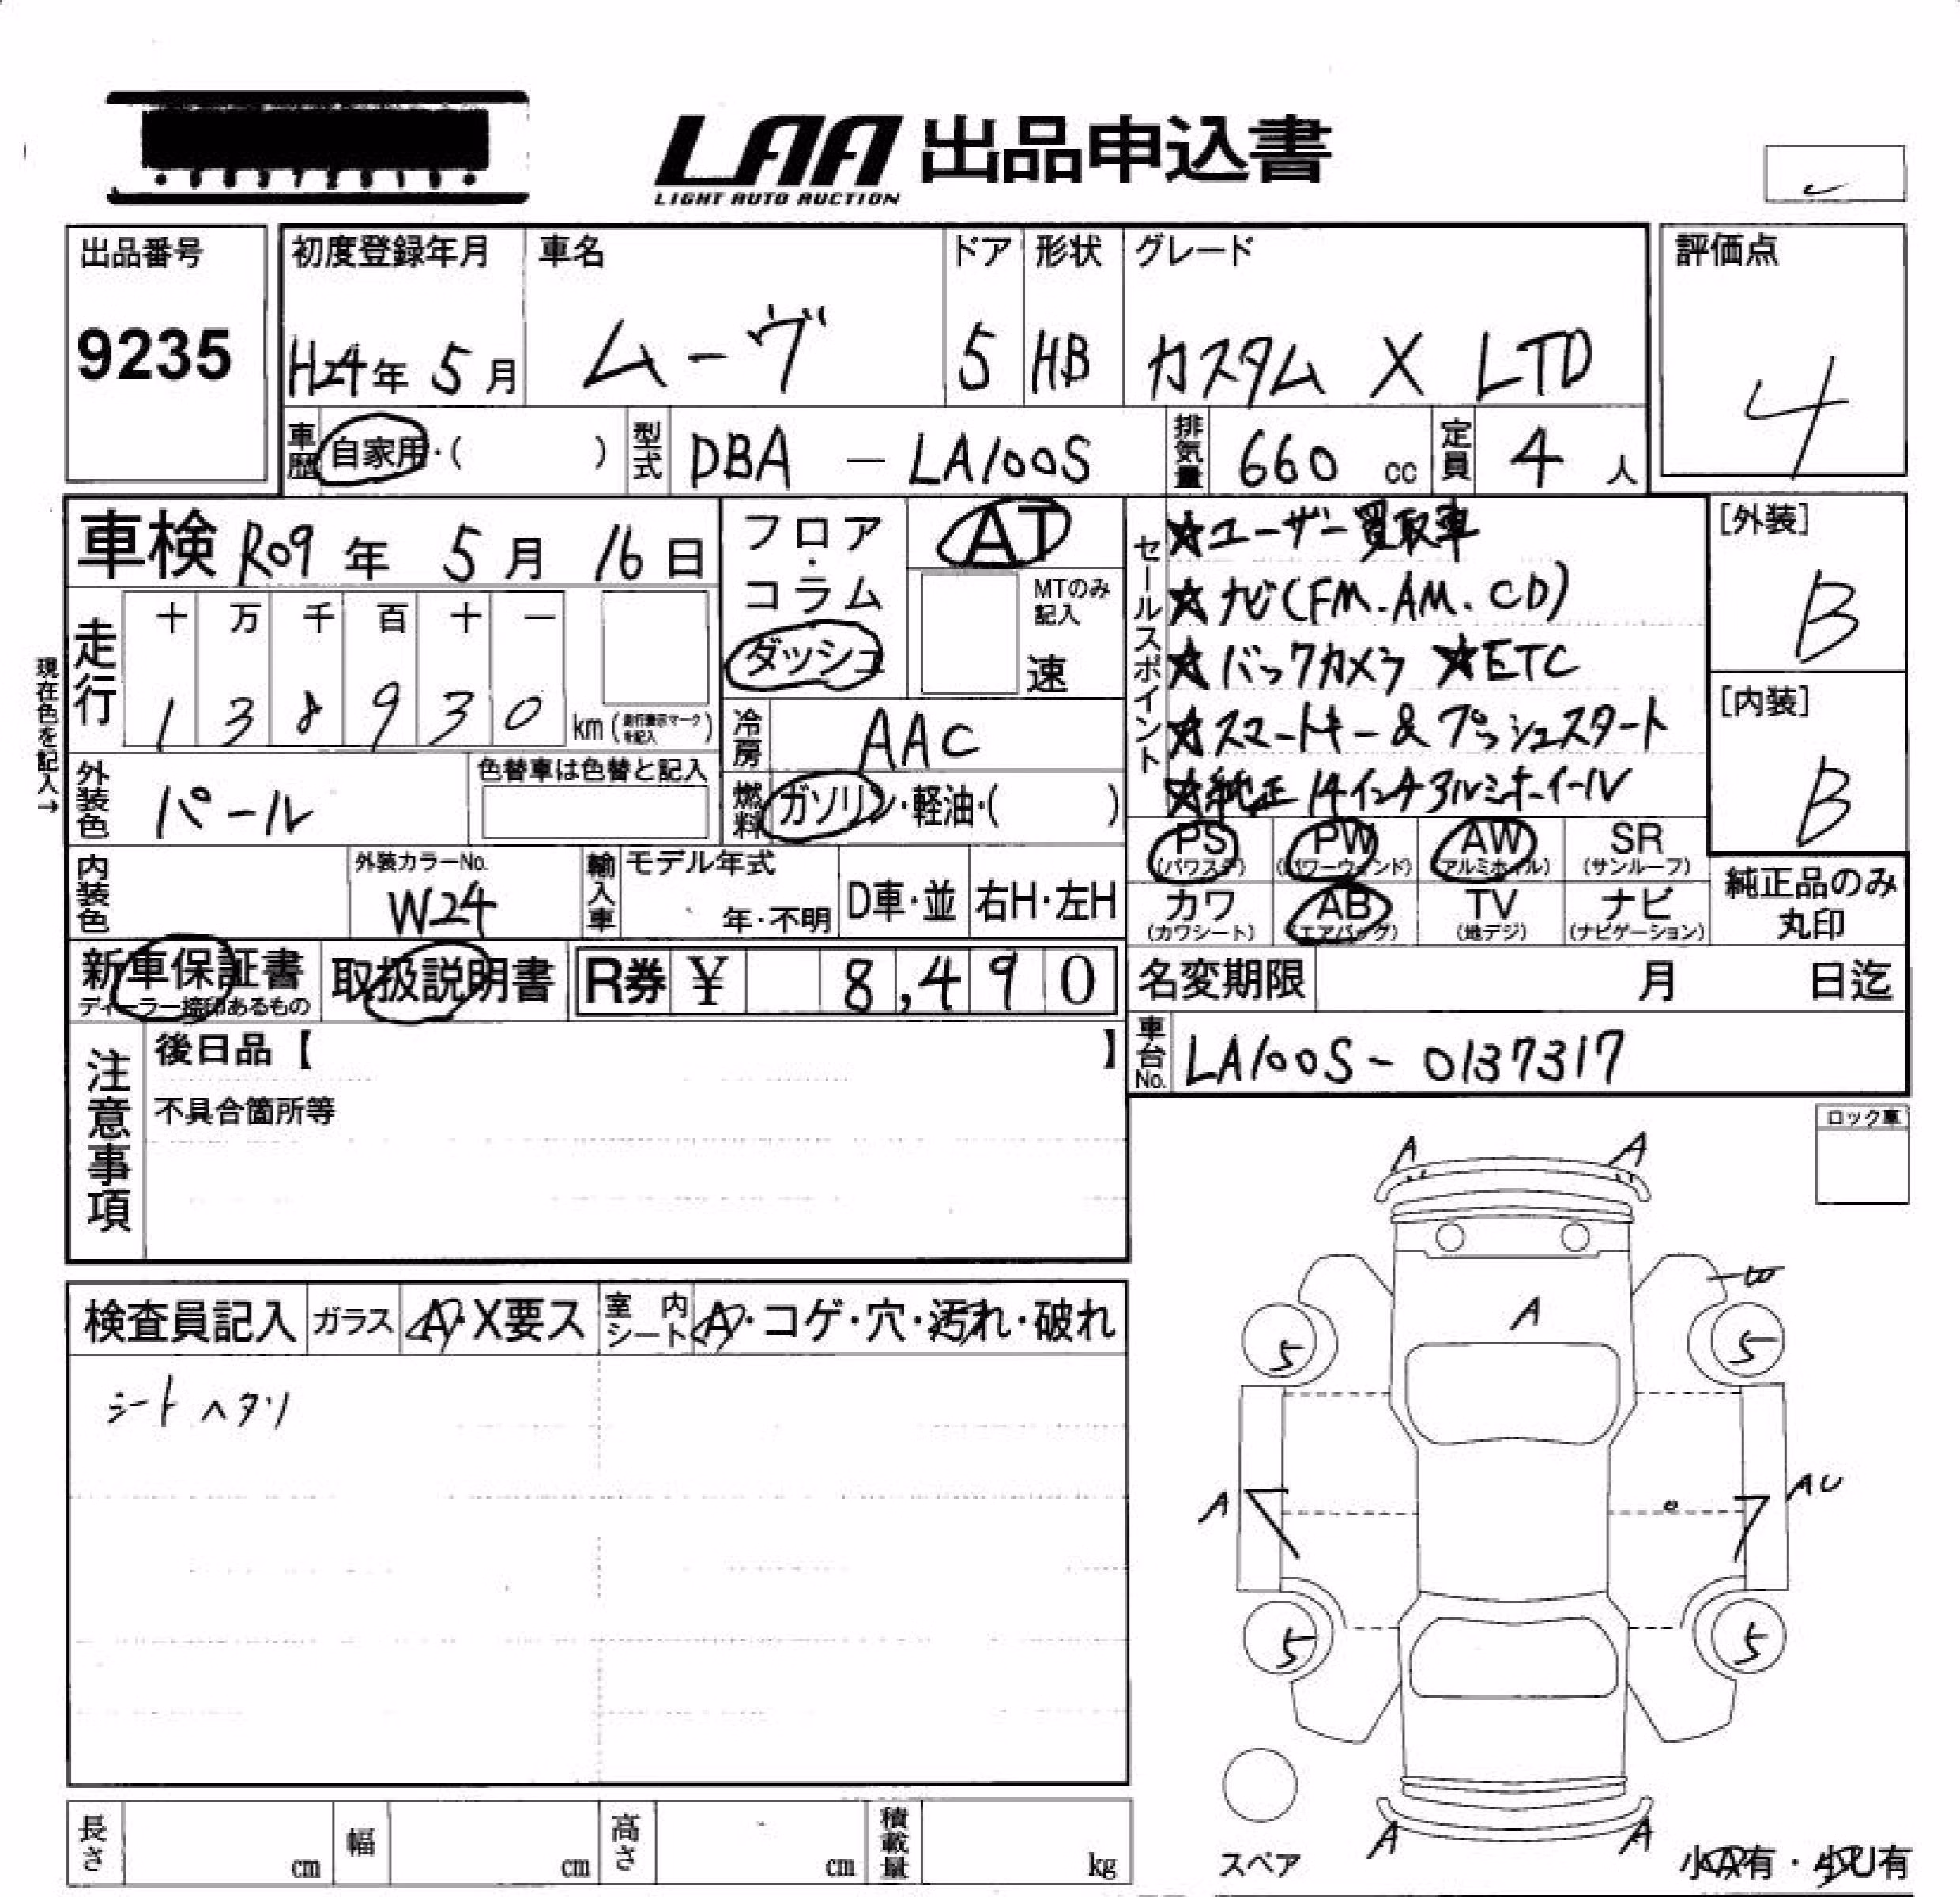 LAA 出品申込書
LIGHT AUTO AUCTION
出品番号
9235
初度登録年月 車名 ドア 形状 グレード
H24年 5月 ムーヴ 5 HB カスタム X LTD
評価点
4
車歴 自家用・( ) 型式 DBA - LA100S 排気量 660 cc 定員 4 人
車検 R09 年 5 月 16 日
フロア・コラム
ダッシュ
AT
MTのみ記入
速
セールスポイント
★ユーザー買取車
★ナビ(FM.AM.CD)
★バックカメラ ★ETC
★スマートキー&プッシュスタート
★純正14インチアルミホイール
[外装]
B
[内装]
B
現在色を記入→
走行 十 万 千 百 十 一
1 3 8 9 3 0 km (走行表示マークを記入)
冷房 AAC
外装色 パール 色替車は色替と記入
燃料 ガソリン・軽油・( )
PS (パワステ) PW (パワーウィンド) AW (アルミホイル) SR (サンルーフ)
カワ (カワシート) AB (エアバッグ) TV (地デジ) ナビ (ナビゲーション)
純正品のみ
丸印
内装色 外装カラーNo. W24 輸入車 モデル年式 年・不明 D車・並 右H・左H
新車保証書 取扱説明書 R券 ¥ 8,490
ディーラー捺印あるもの
名変期限 月 日迄
車台No. LA100S - 0137317
注意事項
後日品【 】
不具合箇所等
ロック車
検査員記入 ガラス A・X要ス 室内シート A・コゲ・穴・汚れ・破れ
シートヘタリ
A A
A
5 5
A AU
5 5
A A
スペア
小A有・小U有
長さ cm 幅 cm 高さ cm 積載量 kg